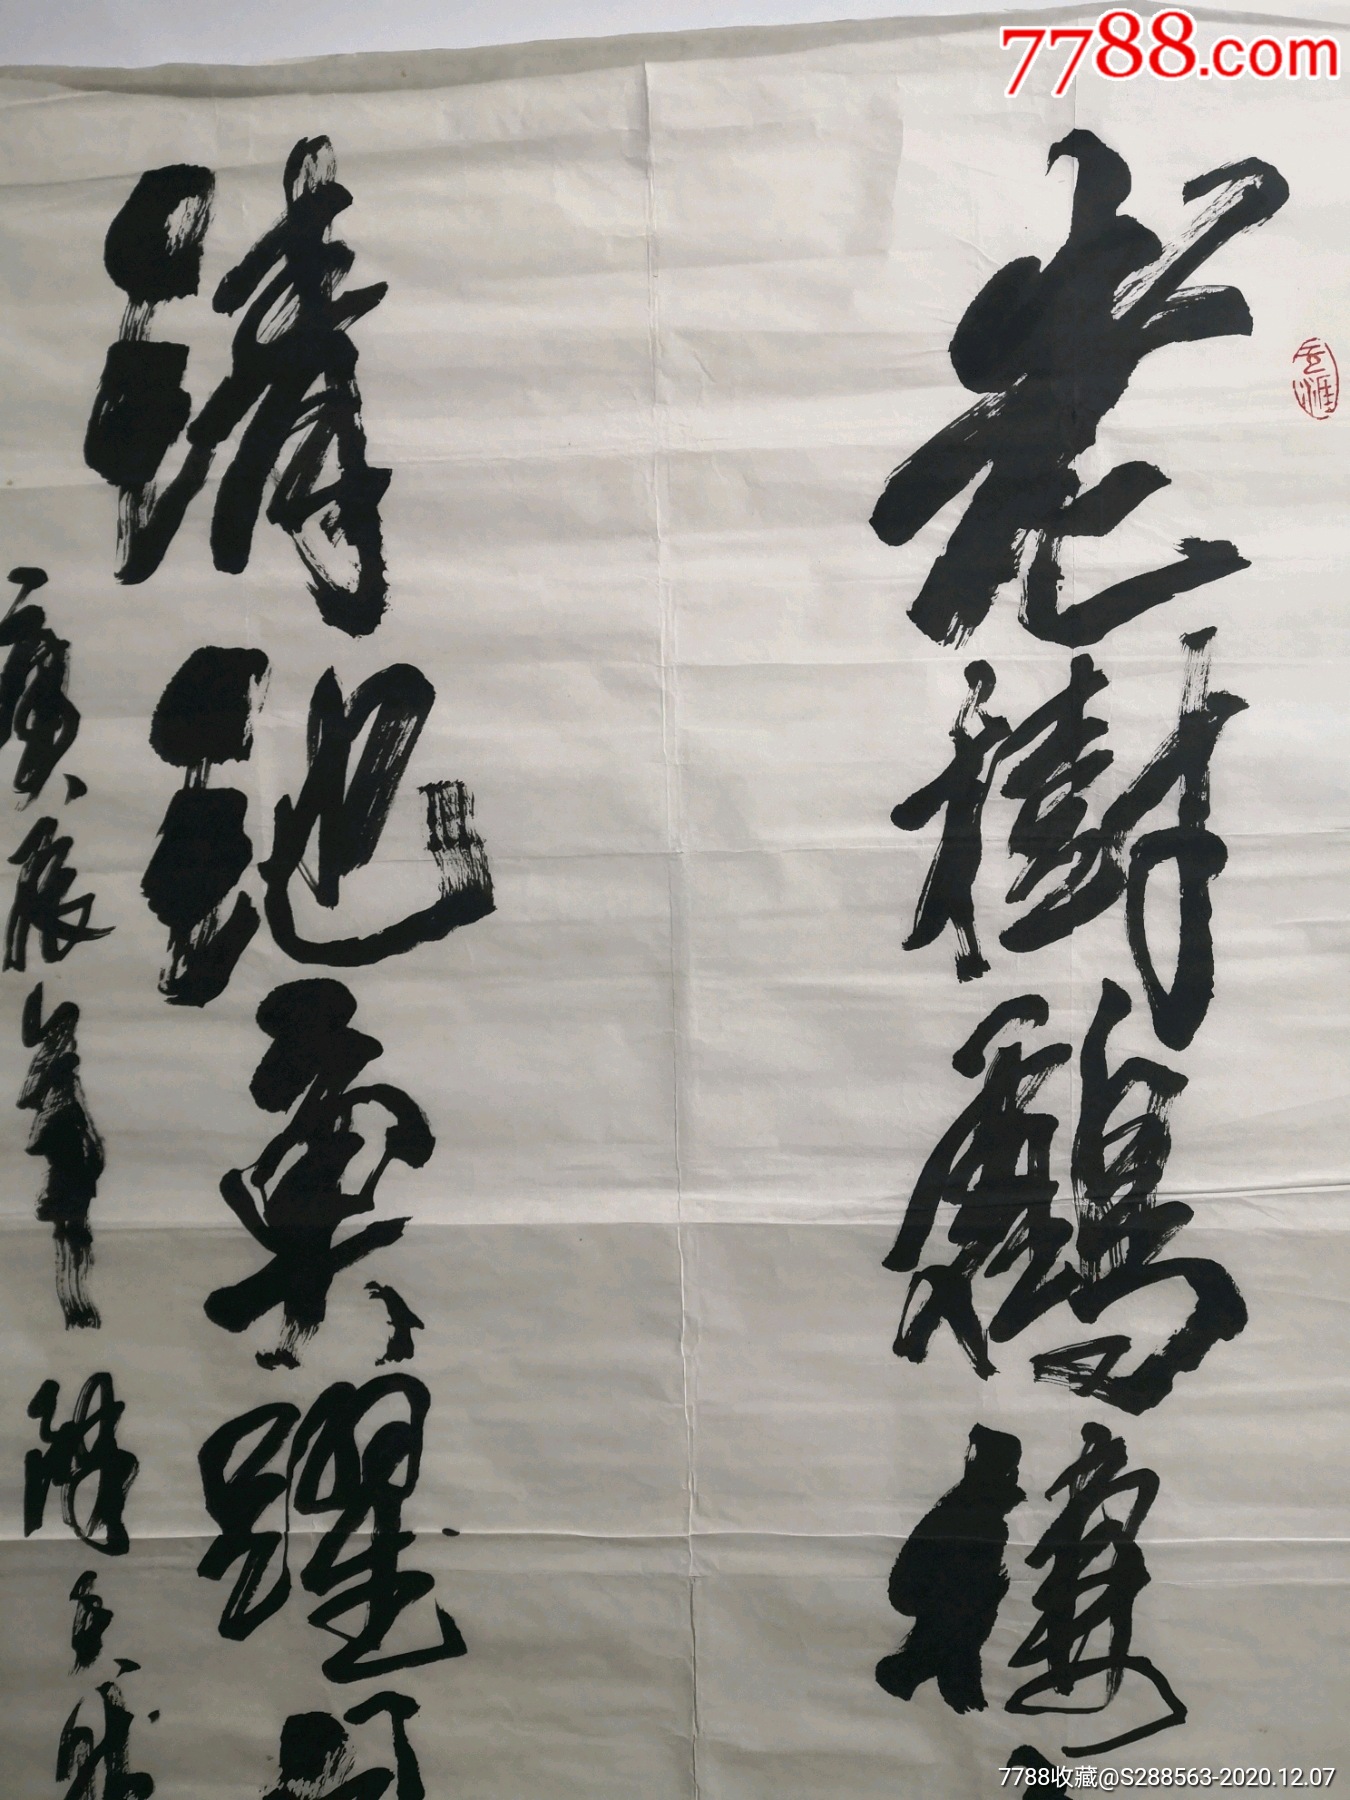 7788.com
老樹鶴棲
清池魚躍
庚辰年
7788收藏@S288563-2020.12.07